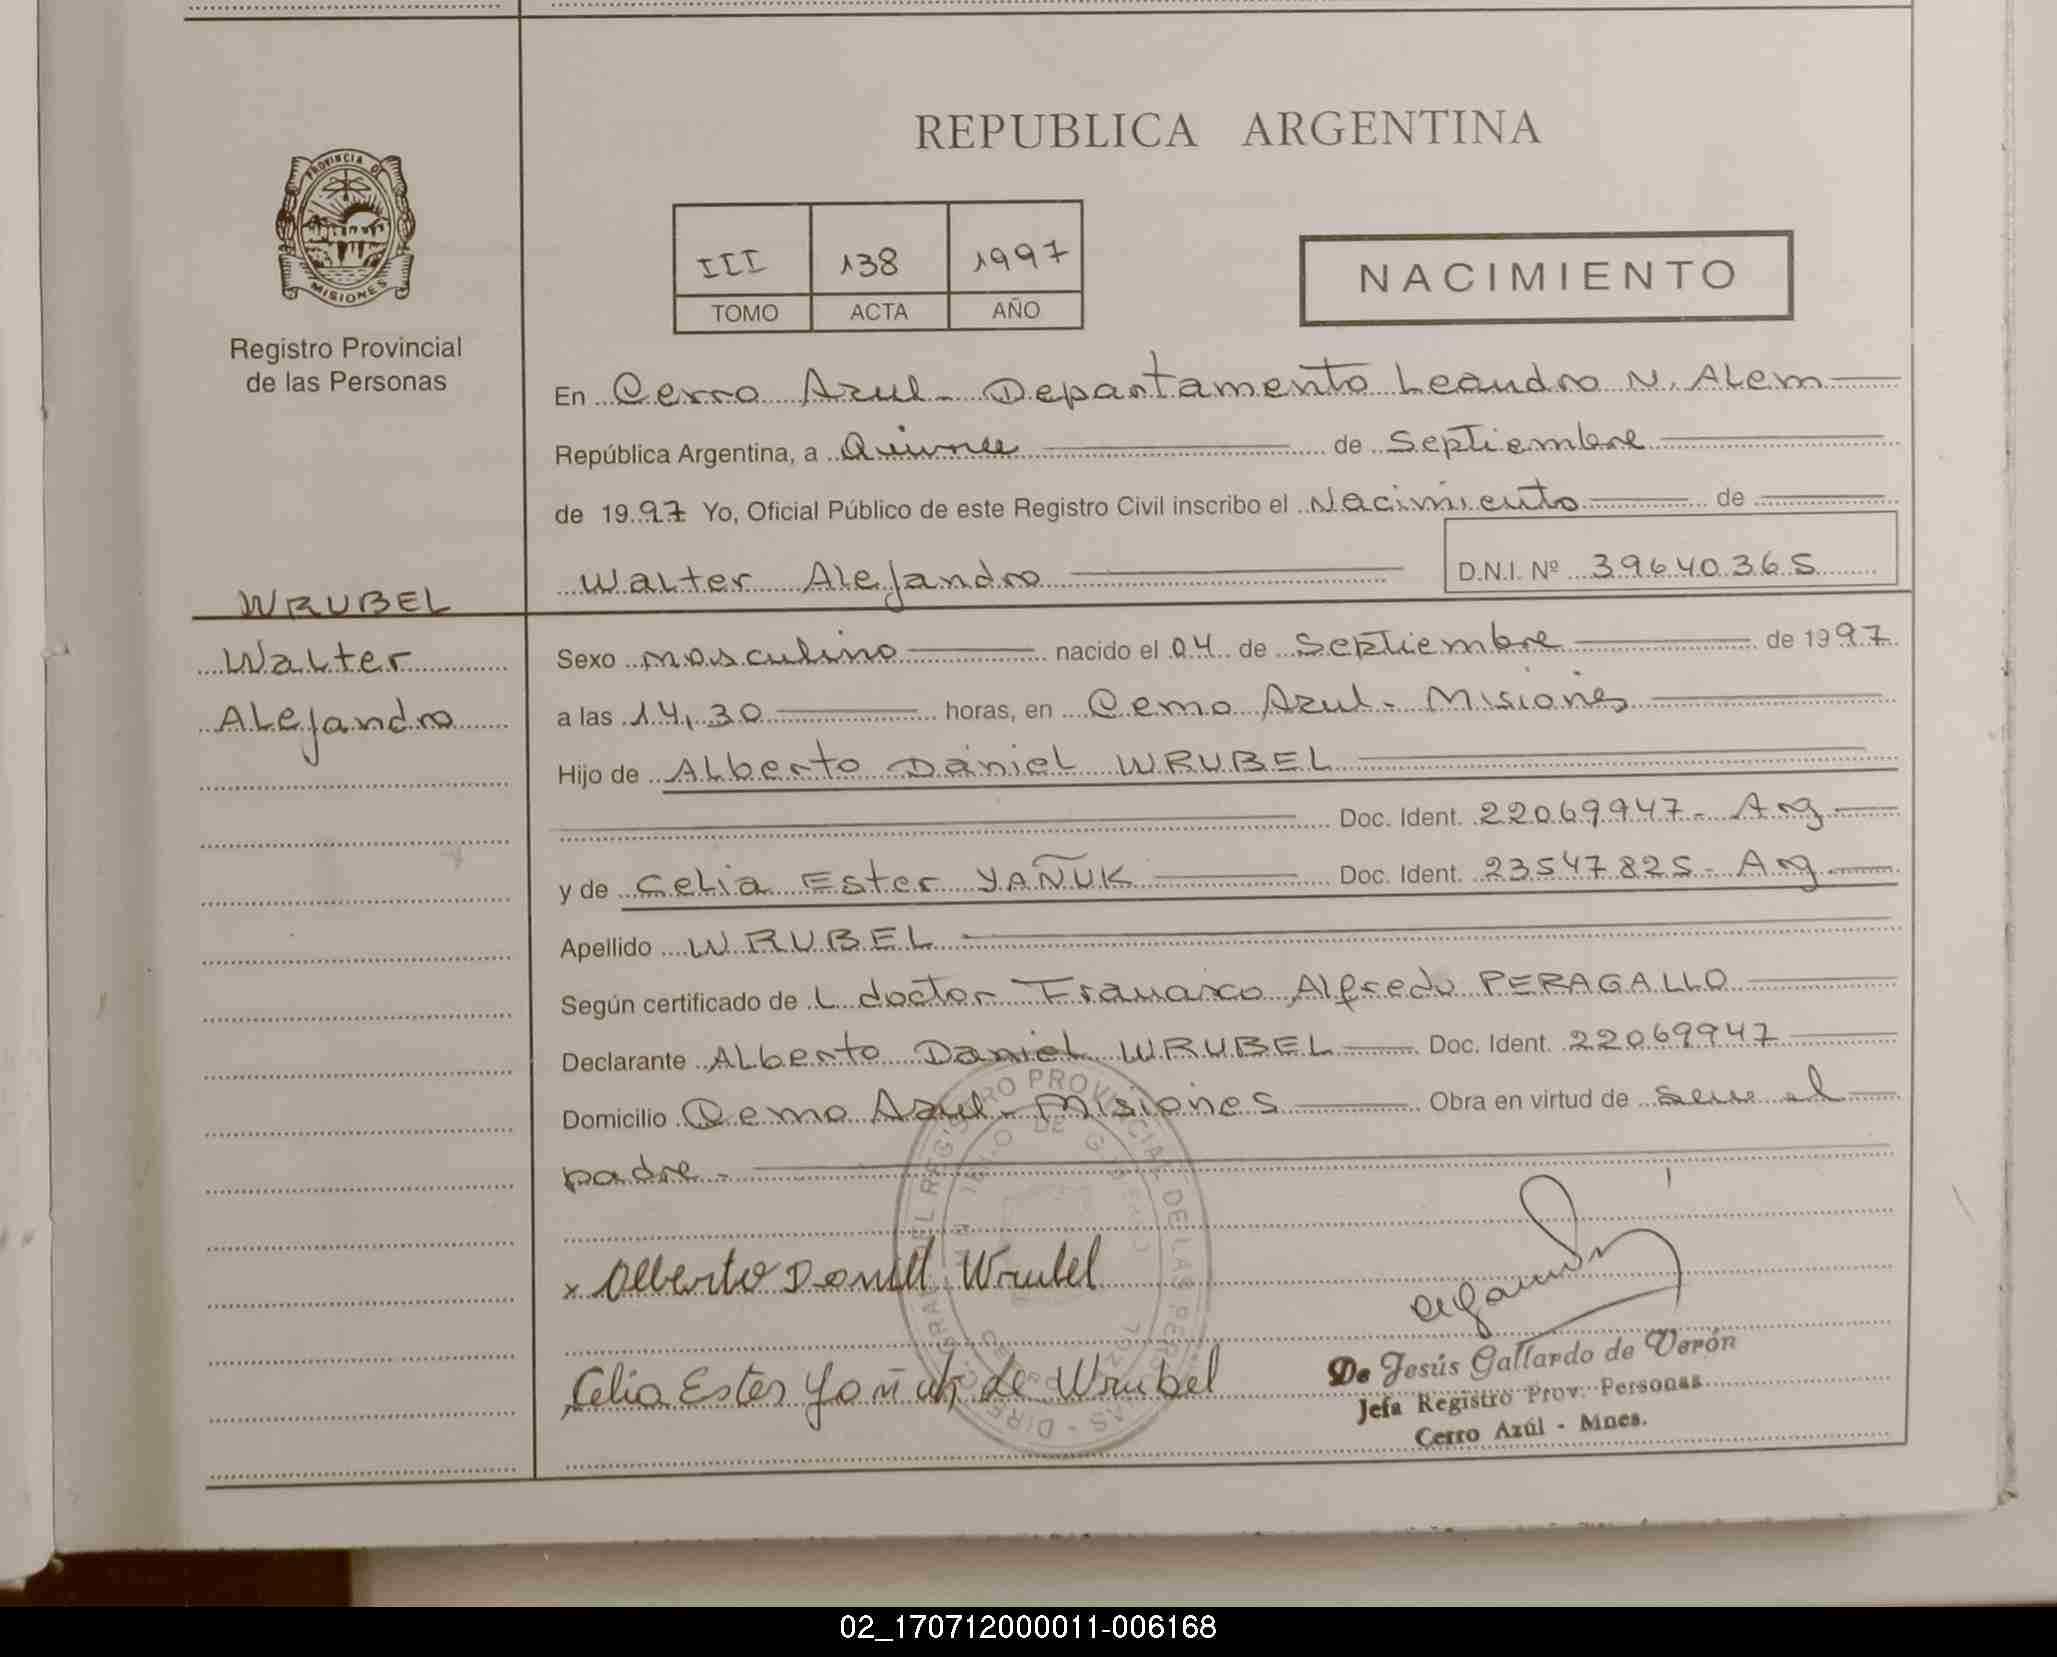 REPUBLICA ARGENTINA
PROVINCIA DE
MISIONES
Registro Provincial
de las Personas
III 138 1997
TOMO ACTA AÑO
NACIMIENTO
En Cerro Azul - Departamento Leandro N. Alem
República Argentina, a Quince de Septiembre
de 1997 Yo, Oficial Público de este Registro Civil inscribo el Nacimiento de
Walter Alejandro D.N.I. Nº 39640365
WRUBEL
Walter
Alejandro
Sexo masculino nacido el 04 de Septiembre de 1997
a las 14,30 horas, en Cerro Azul - Misiones
Hijo de Alberto Daniel WRUBEL
Doc. Ident. 22069947 - Arg
y de Celia Ester YAÑUK Doc. Ident. 23547825 - Arg
Apellido WRUBEL
Según certificado de L doctor Francisco Alfredo PERAGALLO
Declarante Alberto Daniel WRUBEL Doc. Ident. 22069947
Domicilio Cerro Azul - Misiones Obra en virtud de ser el
padre -
x Alberto Daniel Wrubel
Celia Ester Yañuk de Wrubel
De Jesús Gallardo de Verón
Jefa Registro Prov. Personas
Cerro Azúl - Mnes.
02_170712000011-006168